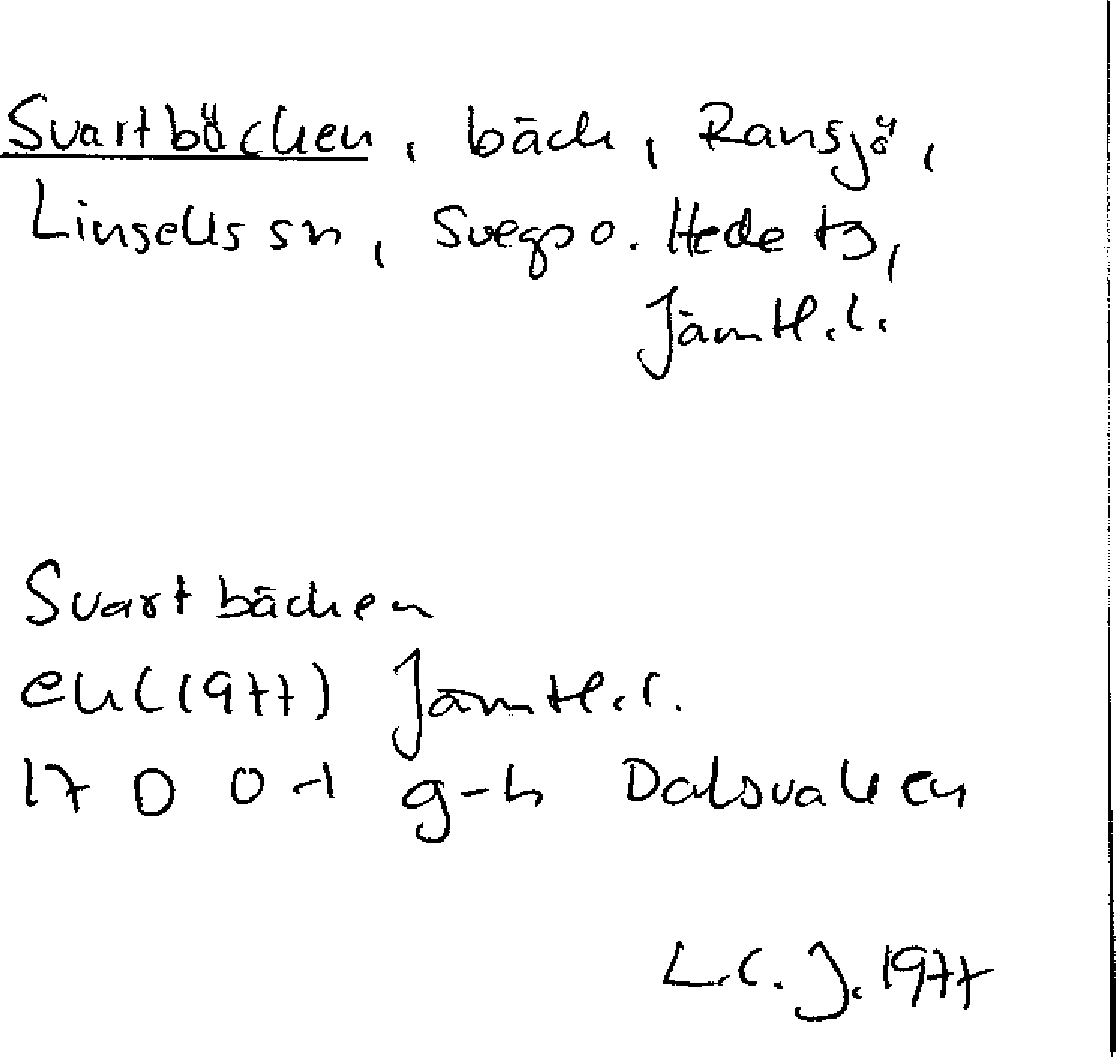 Svartbäcken, bäck, Ransjö,
Linsells sn, Svegs o. Hede ts,
Jämtl.l.
Svartbäcken
ek (1977) Jämtl.l.
17 D 0-1 g-h Dalsvallen
L.C.J. 1977